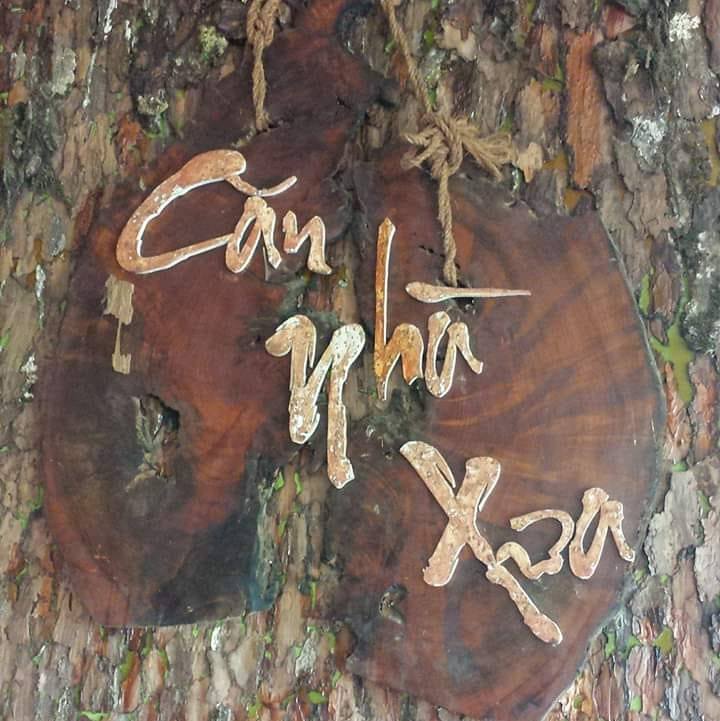 Căn
nhà
Xưa